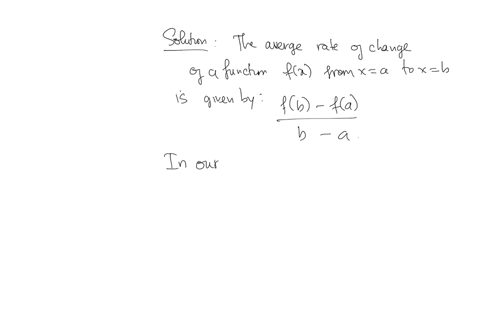 Solution: The averge rate of change
of a function f(x) from x=a to x=b
is given by: f(b) - f(a)
b - a.
In our